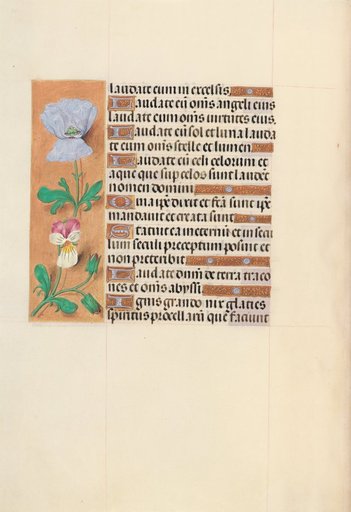 laudate eum in excelsis
Laudate eū om̄s angeli eius
laudate eum om̄s uirtutes eius.
Laudate eū sol et luna lauda
te eum om̄s stelle et lumen
Laudate eū celi celorum et
aque que sup celos sunt laudēt
nomen domini
Quia ip̄e dixit et fc̄ā sunt ip̄e
mandauit et creata sunt
Statuit ea in eternū et in secu
lum seculi preceptum posuit et
non preteribit
Laudate dn̄m de terra traco
nes et om̄s abyssi
Ignis grando nix glacies
spiritus procellarū que faciunt